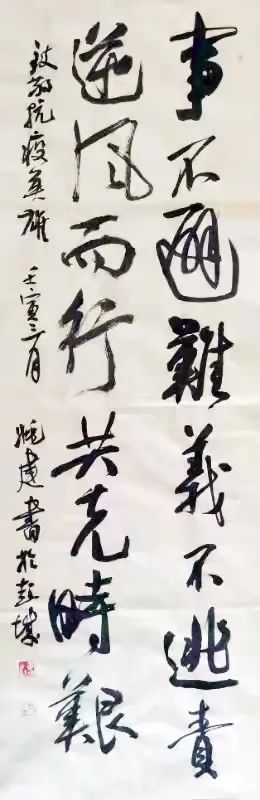 事不避難義不逃責
逆风而行共克時艱
致敬抗疫英雄 壬寅三月 建書於彭城